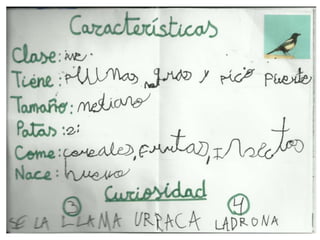 Características
Clase: ave.
Tiene: plumas negras y pico puerte
Tamaño: mediano
Patas: 2
Come: cereales, frutas, insectos
Nace: huevo
Curiosidad
3 4
SE LA LLAMA URPACA LADRONA